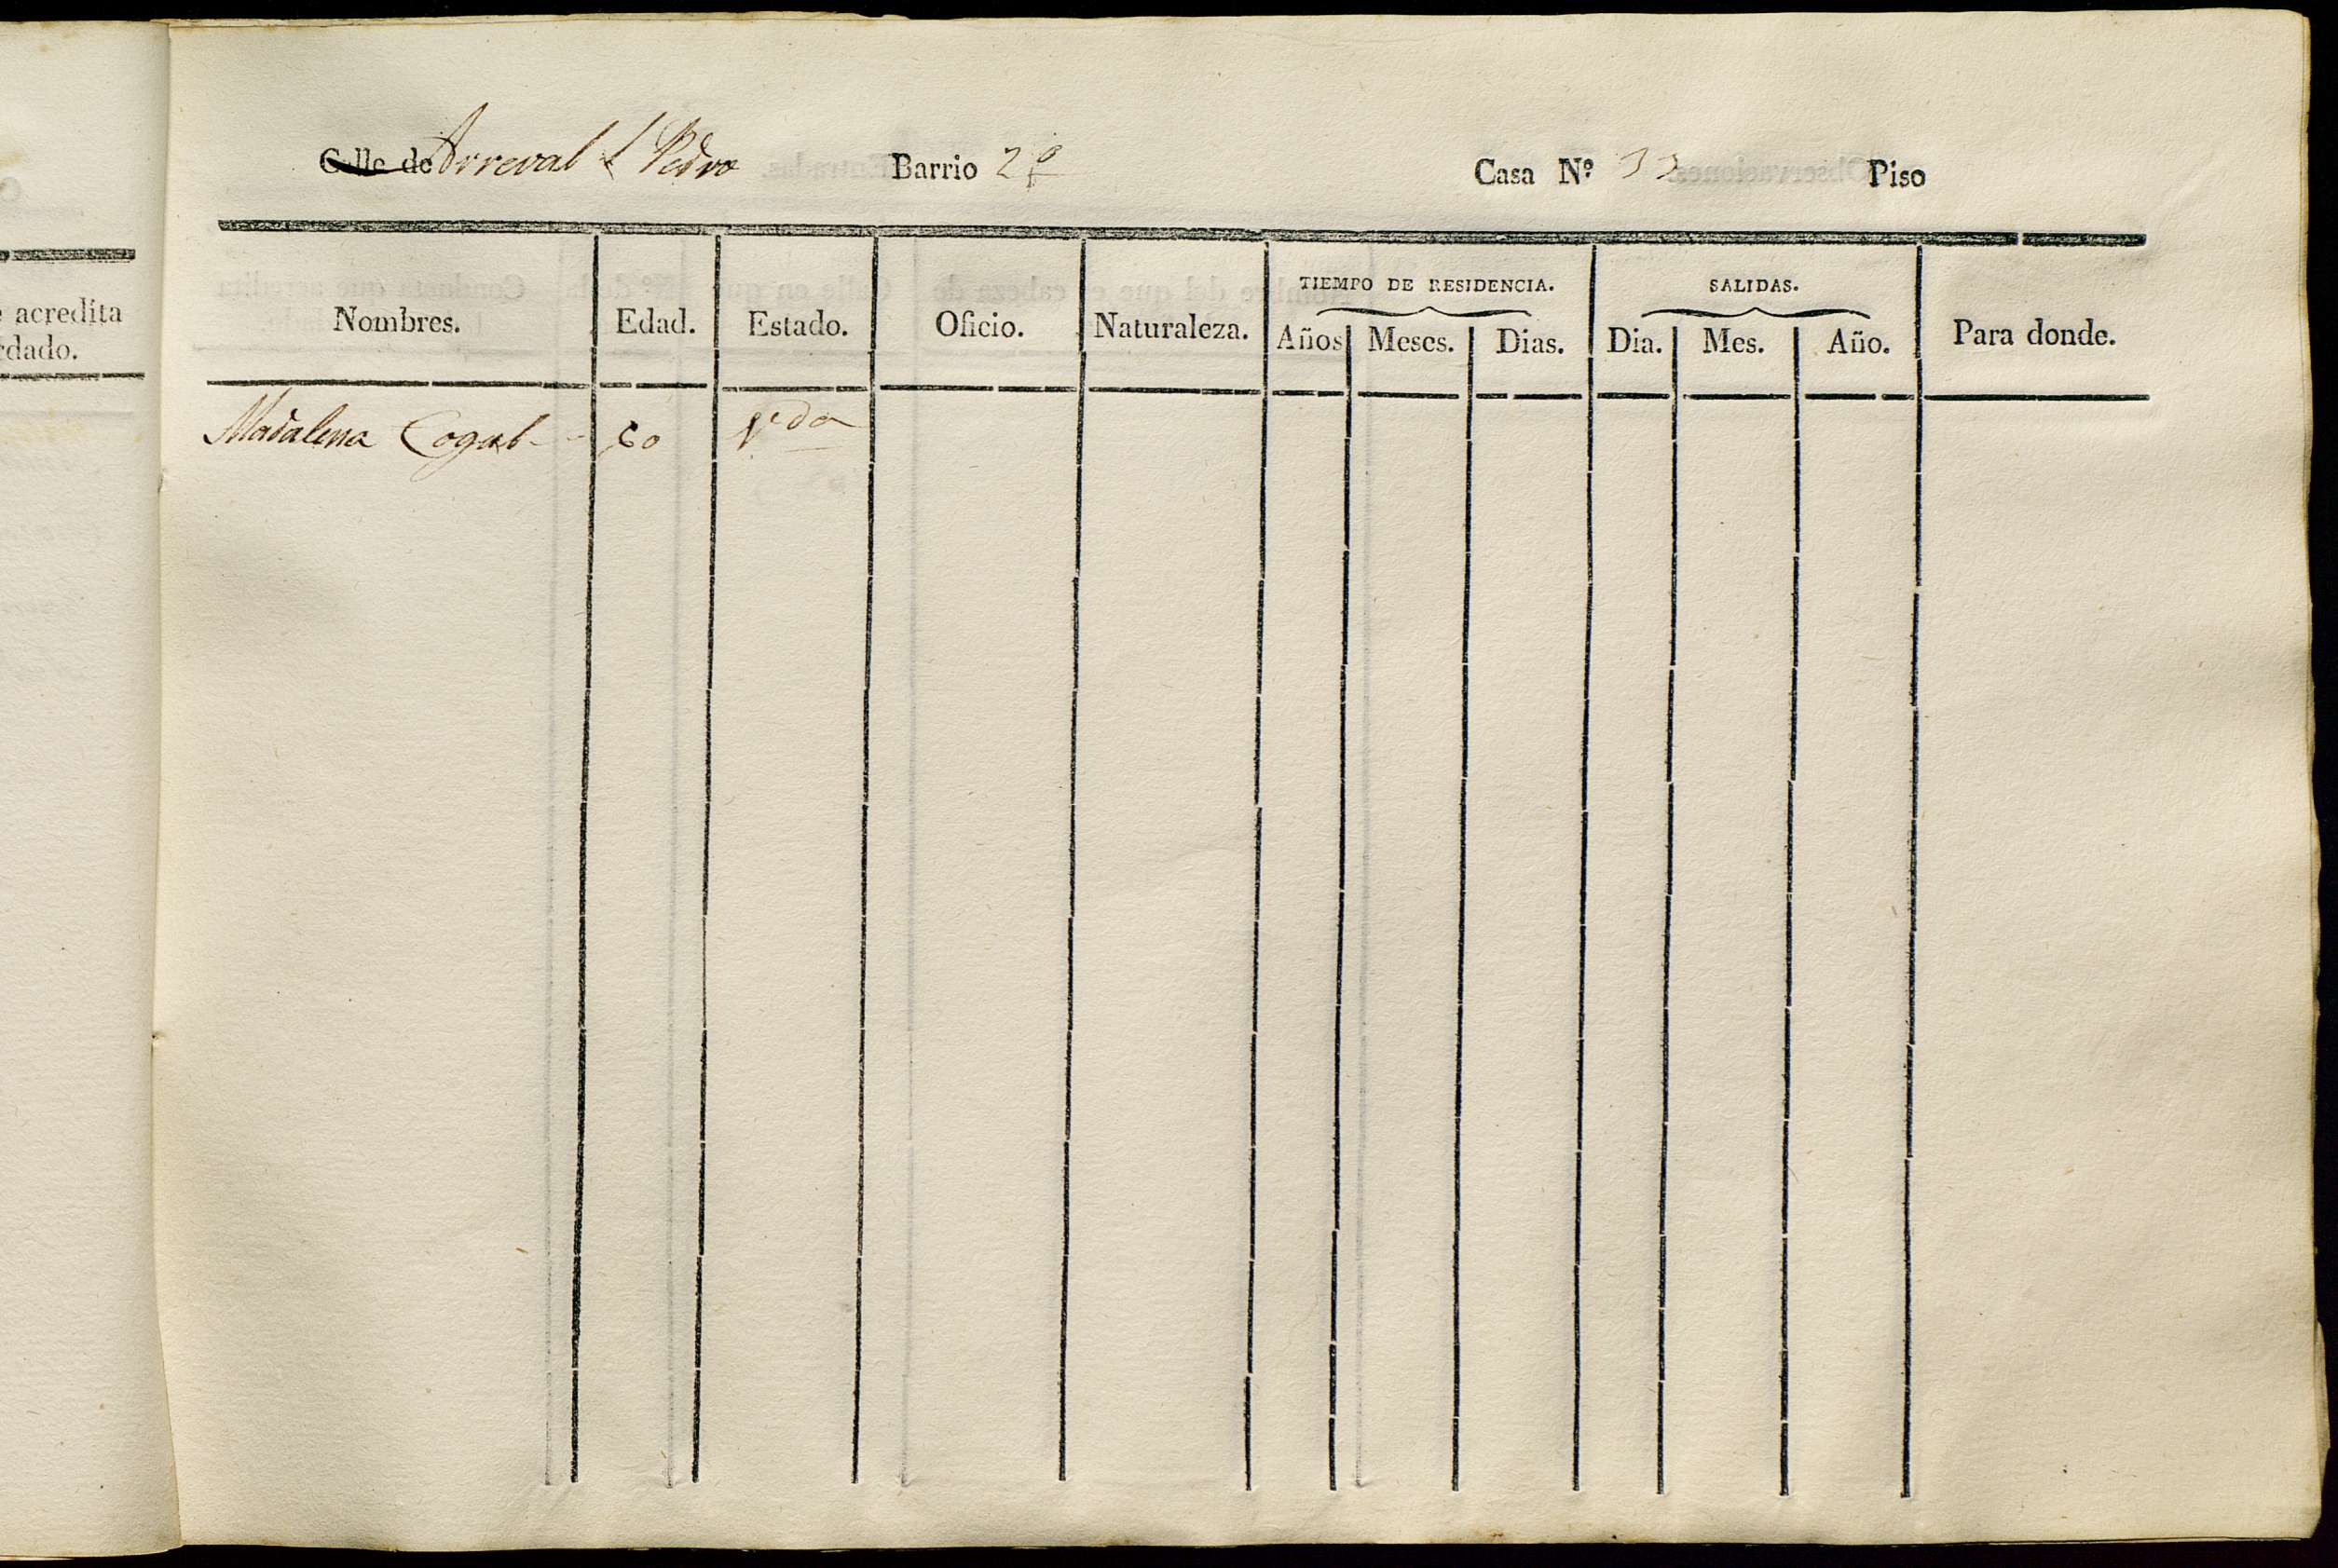 e acredita
rdado.
Calle de Arreval S Pedro Barrio 2º Casa Nº 33 Piso
Nombres. Edad. Estado. Oficio. Naturaleza. TIEMPO DE RESIDENCIA. SALIDAS. Para donde.
Años Meses. Dias. Dia. Mes. Año.
Madalena 60 Vda